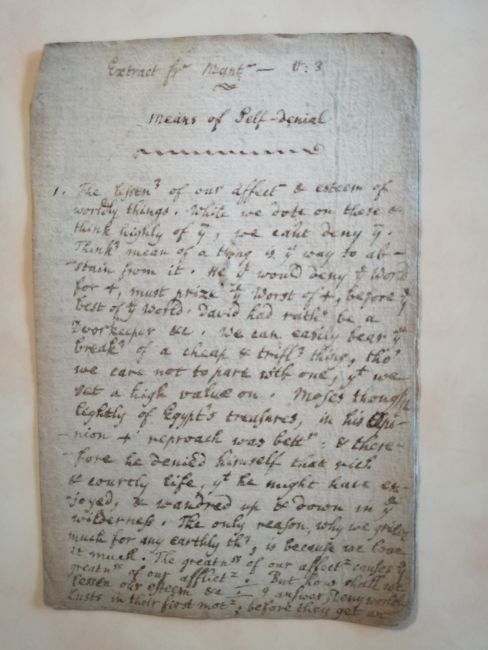 Extract fr Mant — V: 3
Means of Self-denial
1. The lessen^g of our affect^n & esteem of
worldly things. While we dote on these &
think highly of y^m, we can't deny y^m.
Think^g mean of a thing is y^e way to ab-
stain from it. He y^t would deny y^e World
for +, must prize y^e Worst of +, before y^e
best of y^e World. David had rath^r be a
Doorkeeper &c. We can easily bear y^e
break^g of a cheap & trifl^g thing, tho'
we care not to part with one, y^t we
set a high value on. Moses thought
lightly of Egypt's treasures, in his Opi-
-nion + reproach was bett^r: & there-
-fore he denied himself that rich
& courtly life, y^t he might have en-
joyed, & wandred up & down in y^e
wilderness. The only reason, why we grieve
much for any earthly th^g, is because we love
it much. The greatn^ss of our affect^n causes y^e
greatn^ss of our afflict^n. But how shall we
lessen our esteem &c. answer, Deny worldly
Lusts in their first mot^n, before they get an